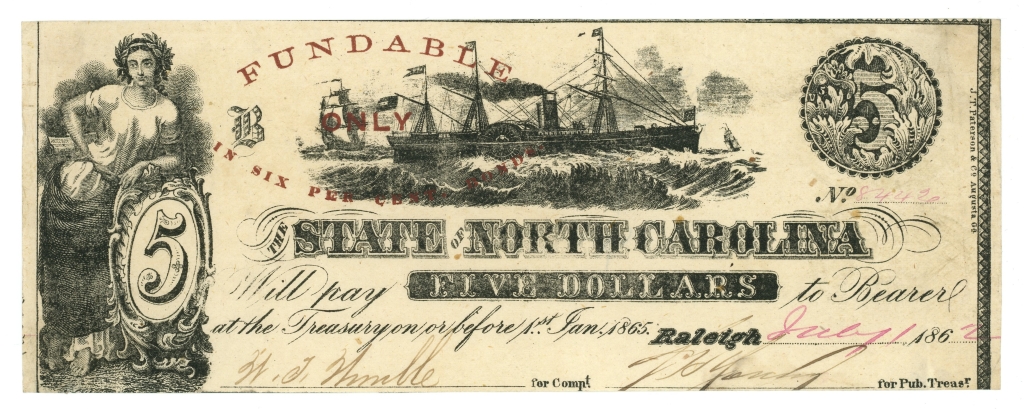 FUNDABLE
ONLY
IN SIX PER CENT BONDS.
B
5
5
No.
J.T. Paterson & Co Augusta Ga
THE STATE OF NORTH CAROLINA
Will pay FIVE DOLLARS to Bearer
at the Treasury on or before 1st Jan, 1865. Raleigh July 1 1862
for Compt.
for Pub. Treasr.